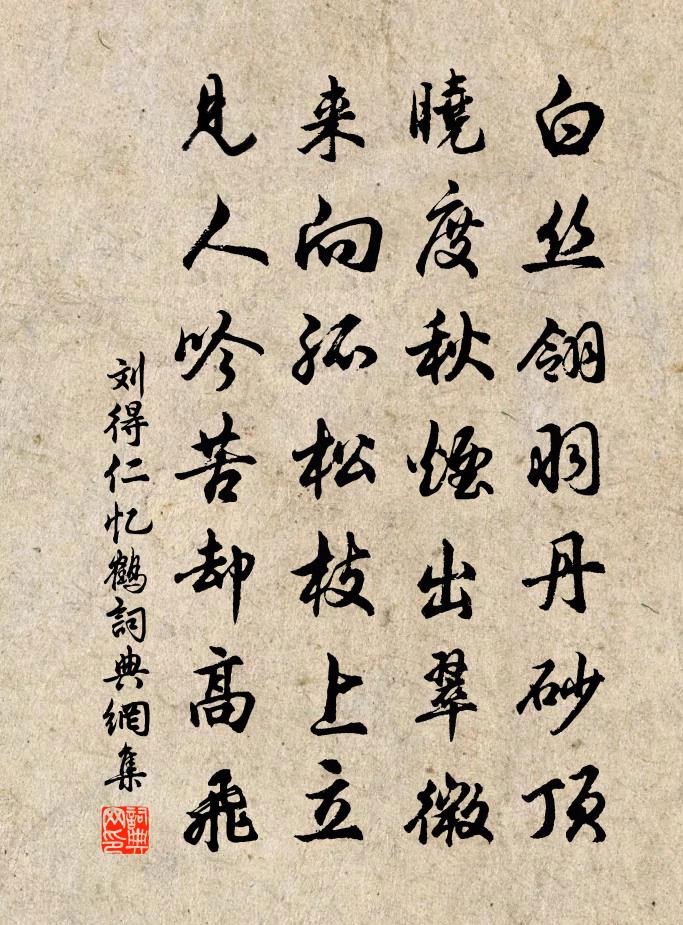 白丝翎羽丹砂顶
晓度秋烟出翠微
来向孤松枝上立
见人吟苦却高飞
刘得仁忆鹤詞典網集
詞典网印